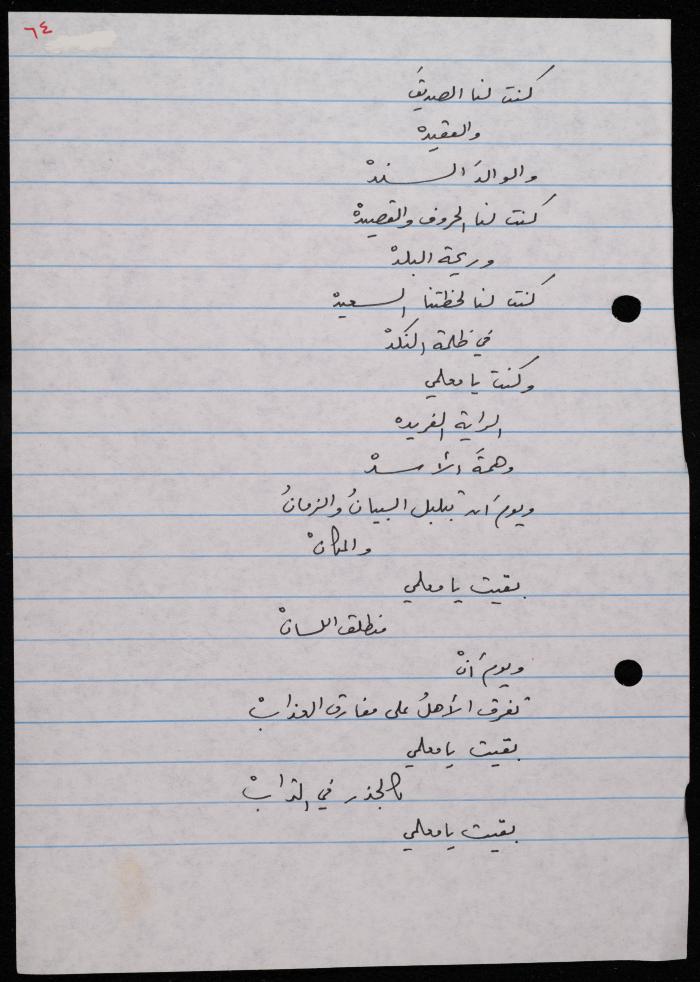 ٦٤
كنت لنا الصديقَ
والعقيدهْ
والوالدَ السندْ
كنت لنا الحروف والقصيدهْ
وريحة البلدْ
كنت لنا لحظتنا السعيدهْ
في ظلمة النكدْ
وكنت يا معلمي
الراية الفريده
وهمةَ الأسدْ
ويومَ أن تبلبل البيانُ والزمانُ
والمكانْ
بقيت يا معلمي
منطلق اللسانْ
ويومَ أنْ
تفرق الأهلُ على مفارق العذابْ
بقيت يا معلمي
كالجذر في الترابْ
بقيت يا معلمي